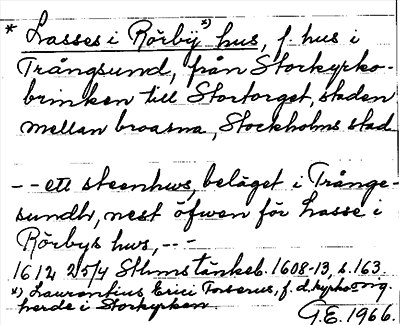 * Lasses i Rörby *) hus, f. hus i
Trångsund, från Storkyrko-
brinken till Stortorget, staden
mellan broarna, Stockholms stad
-- ett steenhws, beläget i Trånge-
sundh, nest öfwen för Lasse i
Rörbys hws, ---
1612 25/4 Sthms tänkeb. 1608-13, s. 163.
*) Laurentius Erici f. d. kyrkoing
herde i Storkyrkan.
G.E. 1966.